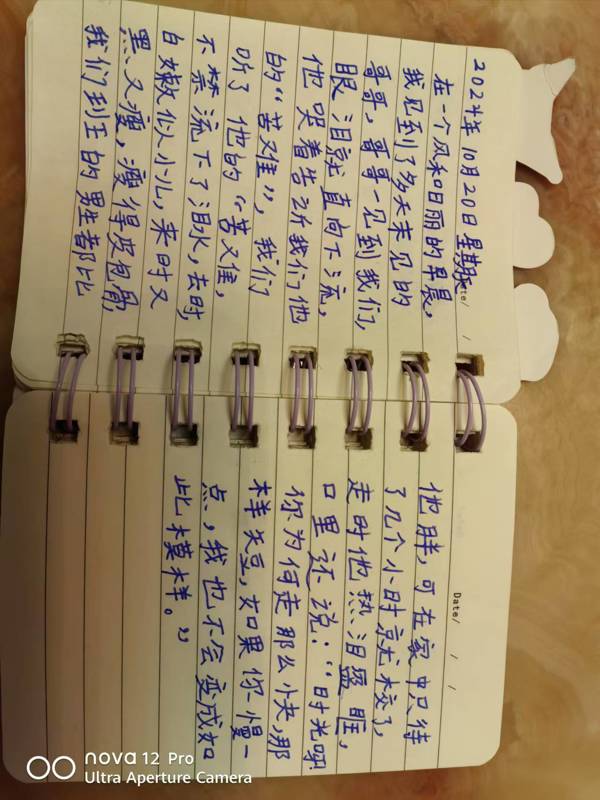 Date/ / /
2024年10月20日 星期
在一个风和日丽的早晨,
我见到了多天未见的
哥哥,哥哥一见到我们,
眼泪就直向下流,
他哭着告诉我们他
的“苦难”,我们
听了他的“苦难,
不禁流下了泪水,去时,
白嫩似小儿,来时又
黑又瘦,瘦得皮包骨,
我们到王的男生都比
Date/ / /
他胖,可在家中只待
了几个小时就校了,
走时他热泪盈眶,
口里还说:“时光呀!
你为何走那么快,那
样短,如果你慢一
点,我也不会变成如
此模样。”
nova 12 Pro
Ultra Aperture Camera